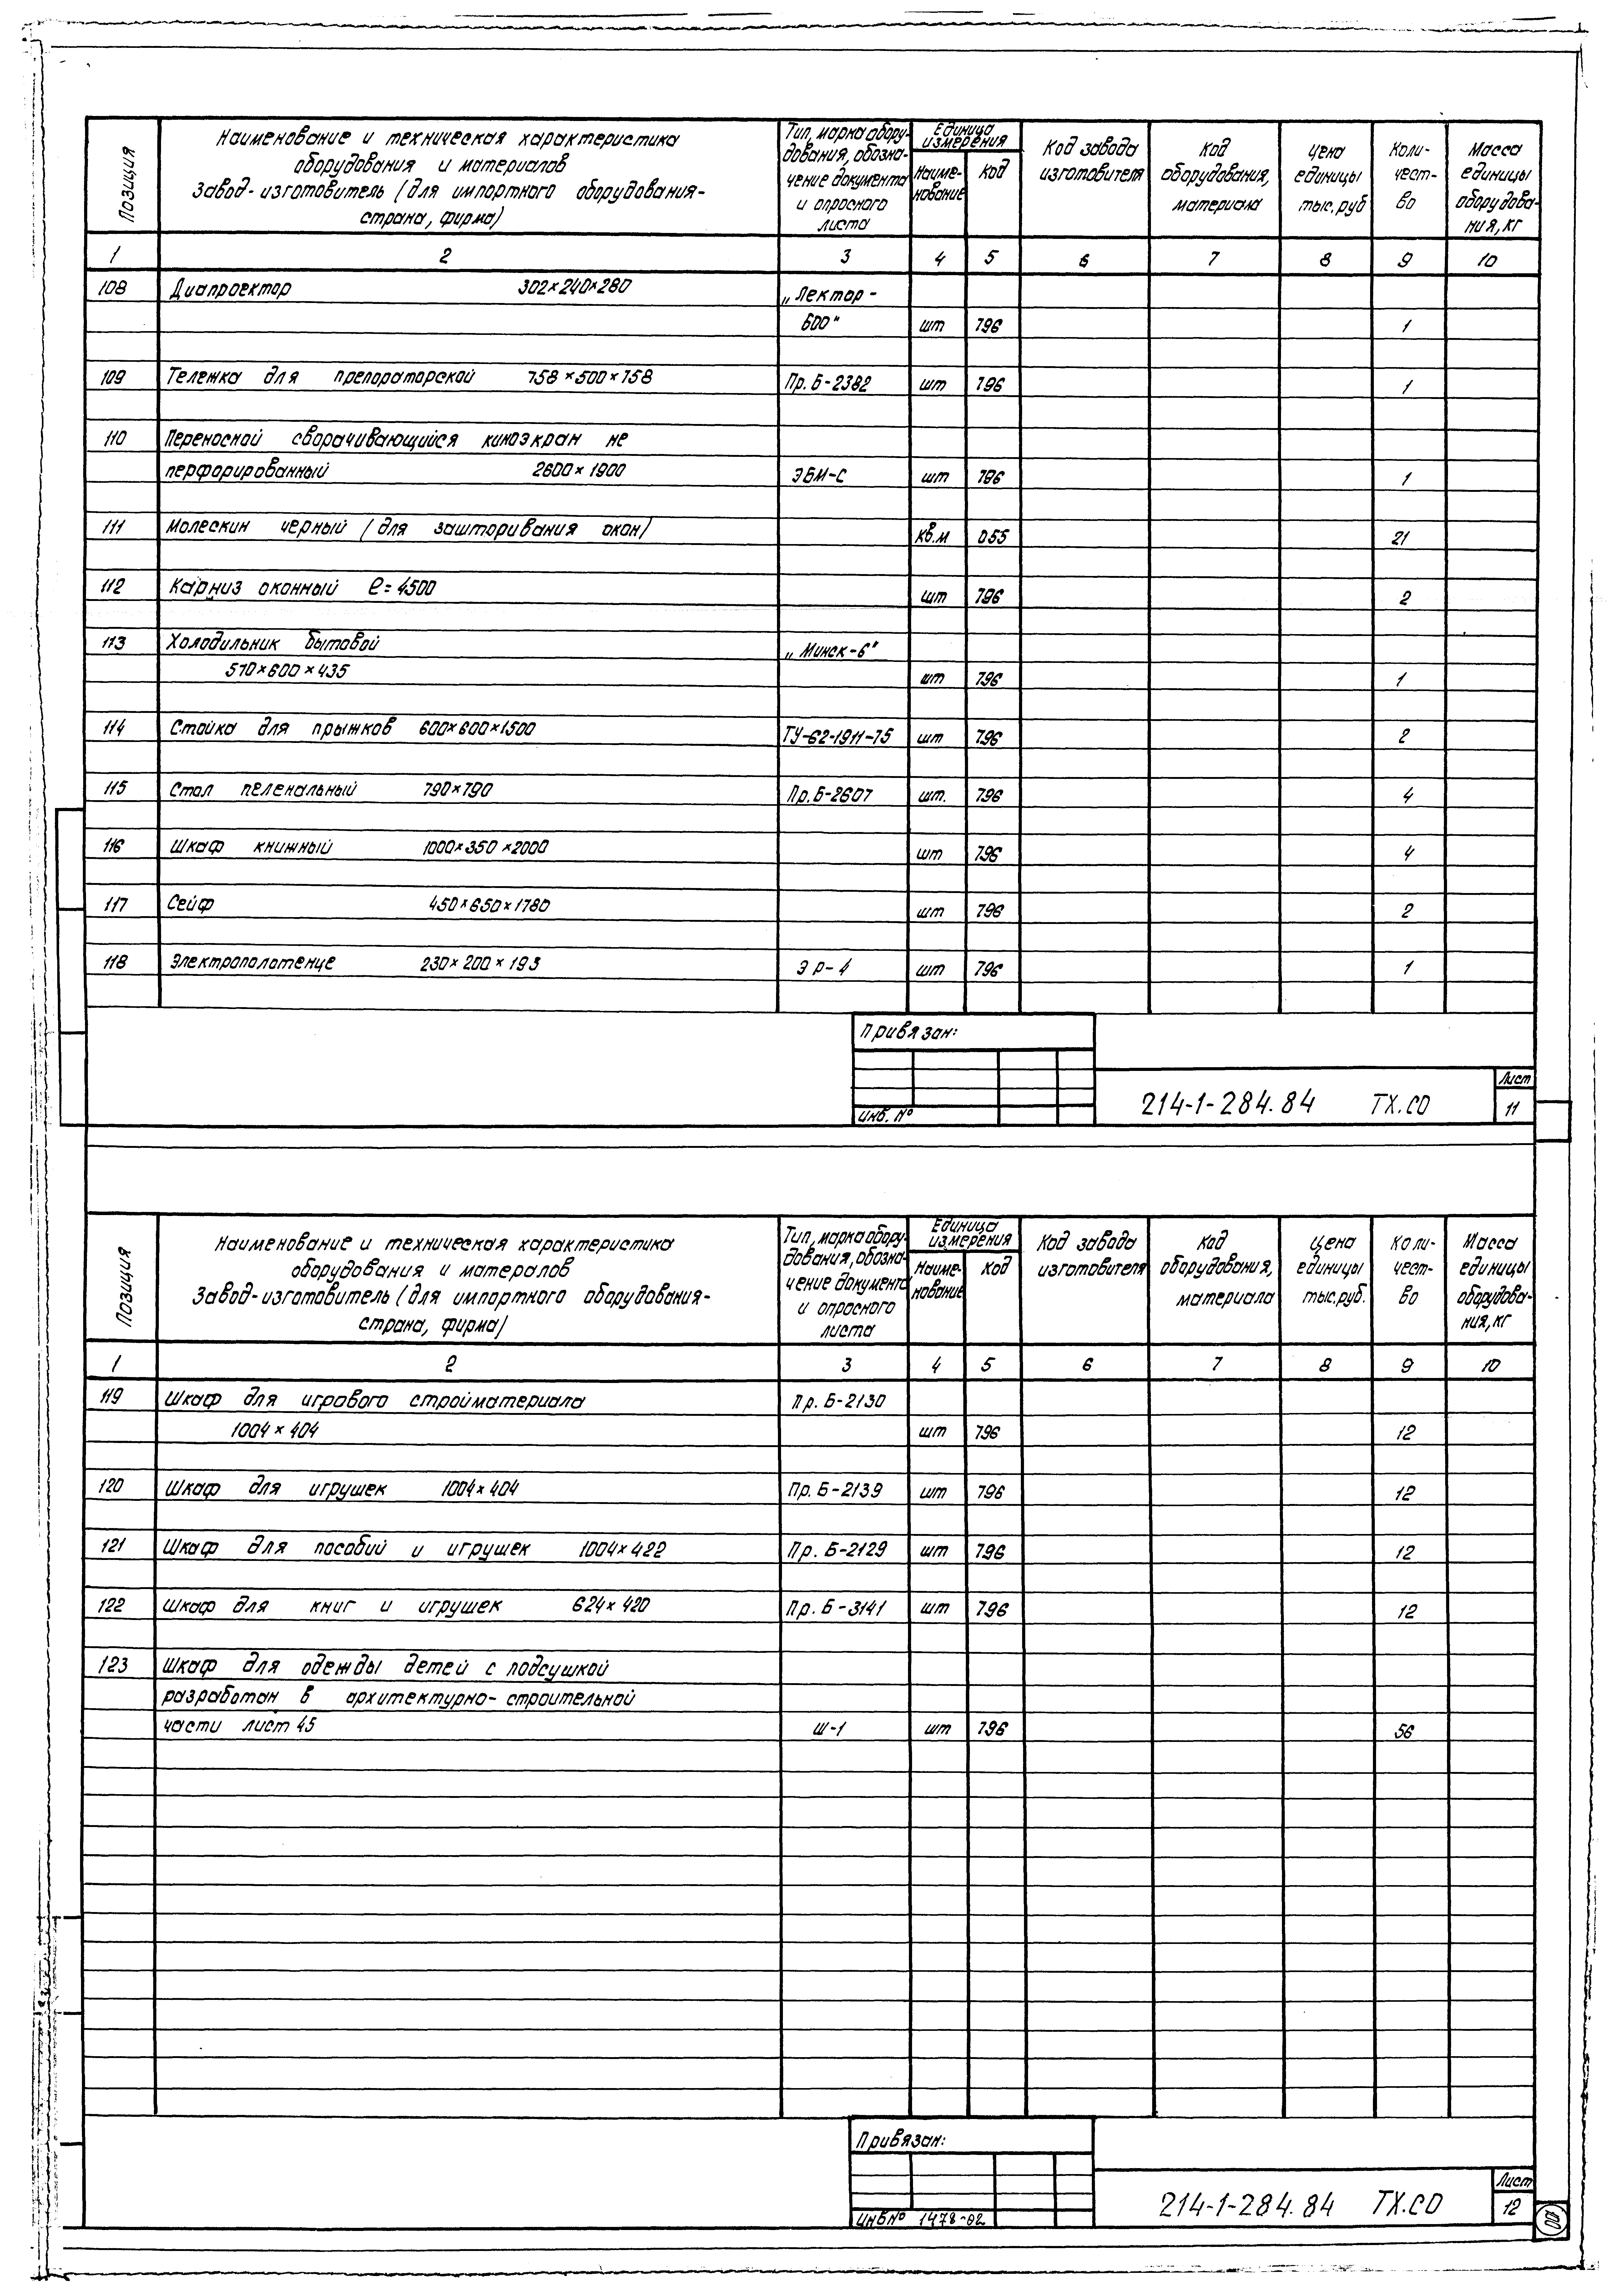 Позиция
Наименование и техническая характеристика
оборудования и материалов
Завод-изготовитель (для импортного оборудования-
страна, фирма)
Тип, марка обору-
дования, обозна-
чение документа
и опросного
листа
Единица
измерения
Наиме-
нование
Код
Код завода
изготовителя
Код
оборудования,
материала
Цена
единицы
тыс.руб
Коли-
чест-
во
Масса
единицы
оборудова-
ния, кг
1 2 3 4 5 6 7 8 9 10
108 Диапроектор 302×240×280 „Лектор-
600" шт 796 1
109 Тележка для препораторской 758×500×758 Пр. Б-2382 шт 796 1
110 Переносной сворачивающийся киноэкран не
перфорированный 2600×1900 ЭБМ-С шт 796 1
111 Молескин черный (для зашторивания окон) кв.м 055 21
112 Карниз оконный ℓ=4500 шт 796 2
113 Холодильник бытовой „Минск-6"
570×600×435 шт 796 1
114 Стойка для прыжков 600×600×1500 ТУ-62-1911-75 шт 796 2
115 Стол пеленальный 790×790 Пр. Б-2607 шт. 796 4
116 Шкаф книжный 1000×350×2000 шт 796 4
117 Сейф 450×650×1780 шт 796 2
118 Электрополотенце 230×200×193 ЭР-4 шт 796 1
Привязан:
Инв. №
214-1-284.84 ТХ.СО
Лист
11
Позиция
Наименование и техническая характеристика
оборудования и матералов
Завод-изготовитель (для импортного оборудования-
страна, фирма)
Тип, марка обору-
дования, обозна-
чение документа
и опросного
листа
Единица
измерения
Наиме-
нование
Код
Код завода
изготовителя
Код
оборудования,
материала
Цена
единицы
тыс.руб.
Коли-
чест-
во
Масса
единицы
оборудова-
ния, кг
1 2 3 4 5 6 7 8 9 10
119 Шкаф для игрового стройматериала Пр. Б-2130
1004×404 шт 796 12
120 Шкаф для игрушек 1004×404 Пр. Б-2139 шт 796 12
121 Шкаф для пособий и игрушек 1004×422 Пр. Б-2129 шт 796 12
122 Шкаф для книг и игрушек 624×420 Пр. Б-3141 шт 796 12
123 Шкаф для одежды детей с подсушкой
разработан в архитектурно-строительной
части лист 45 Ш-1 шт 796 56
Привязан:
Инв № 1478-02
214-1-284.84 ТХ.СО
Лист
12